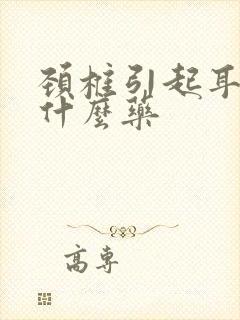 颈椎引起耳
什麼藥
高專